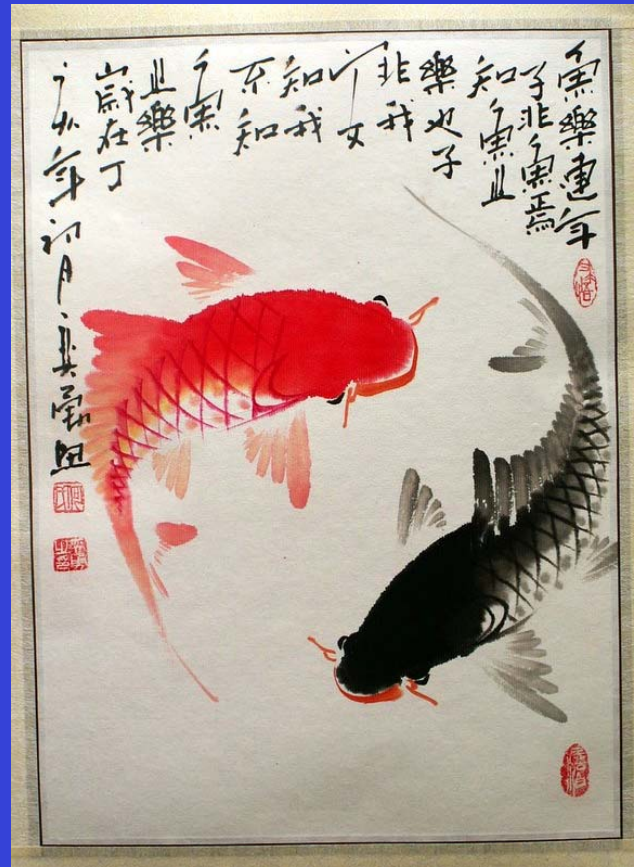 魚樂連年
子非魚焉
知魚之
樂也子
非我
安
知我
不知
魚
之樂
歲在丁
亥年初月